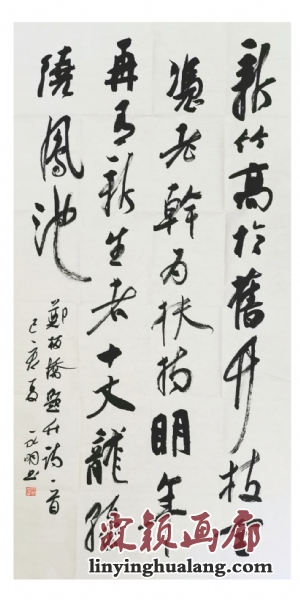 新竹高於舊竹枝全
憑老幹為扶持明年
再有新生者十丈龍孫
繞鳳池
鄭板橋題竹詩一首
己亥夏 明书
霖颖画廊
linyinghualang.com